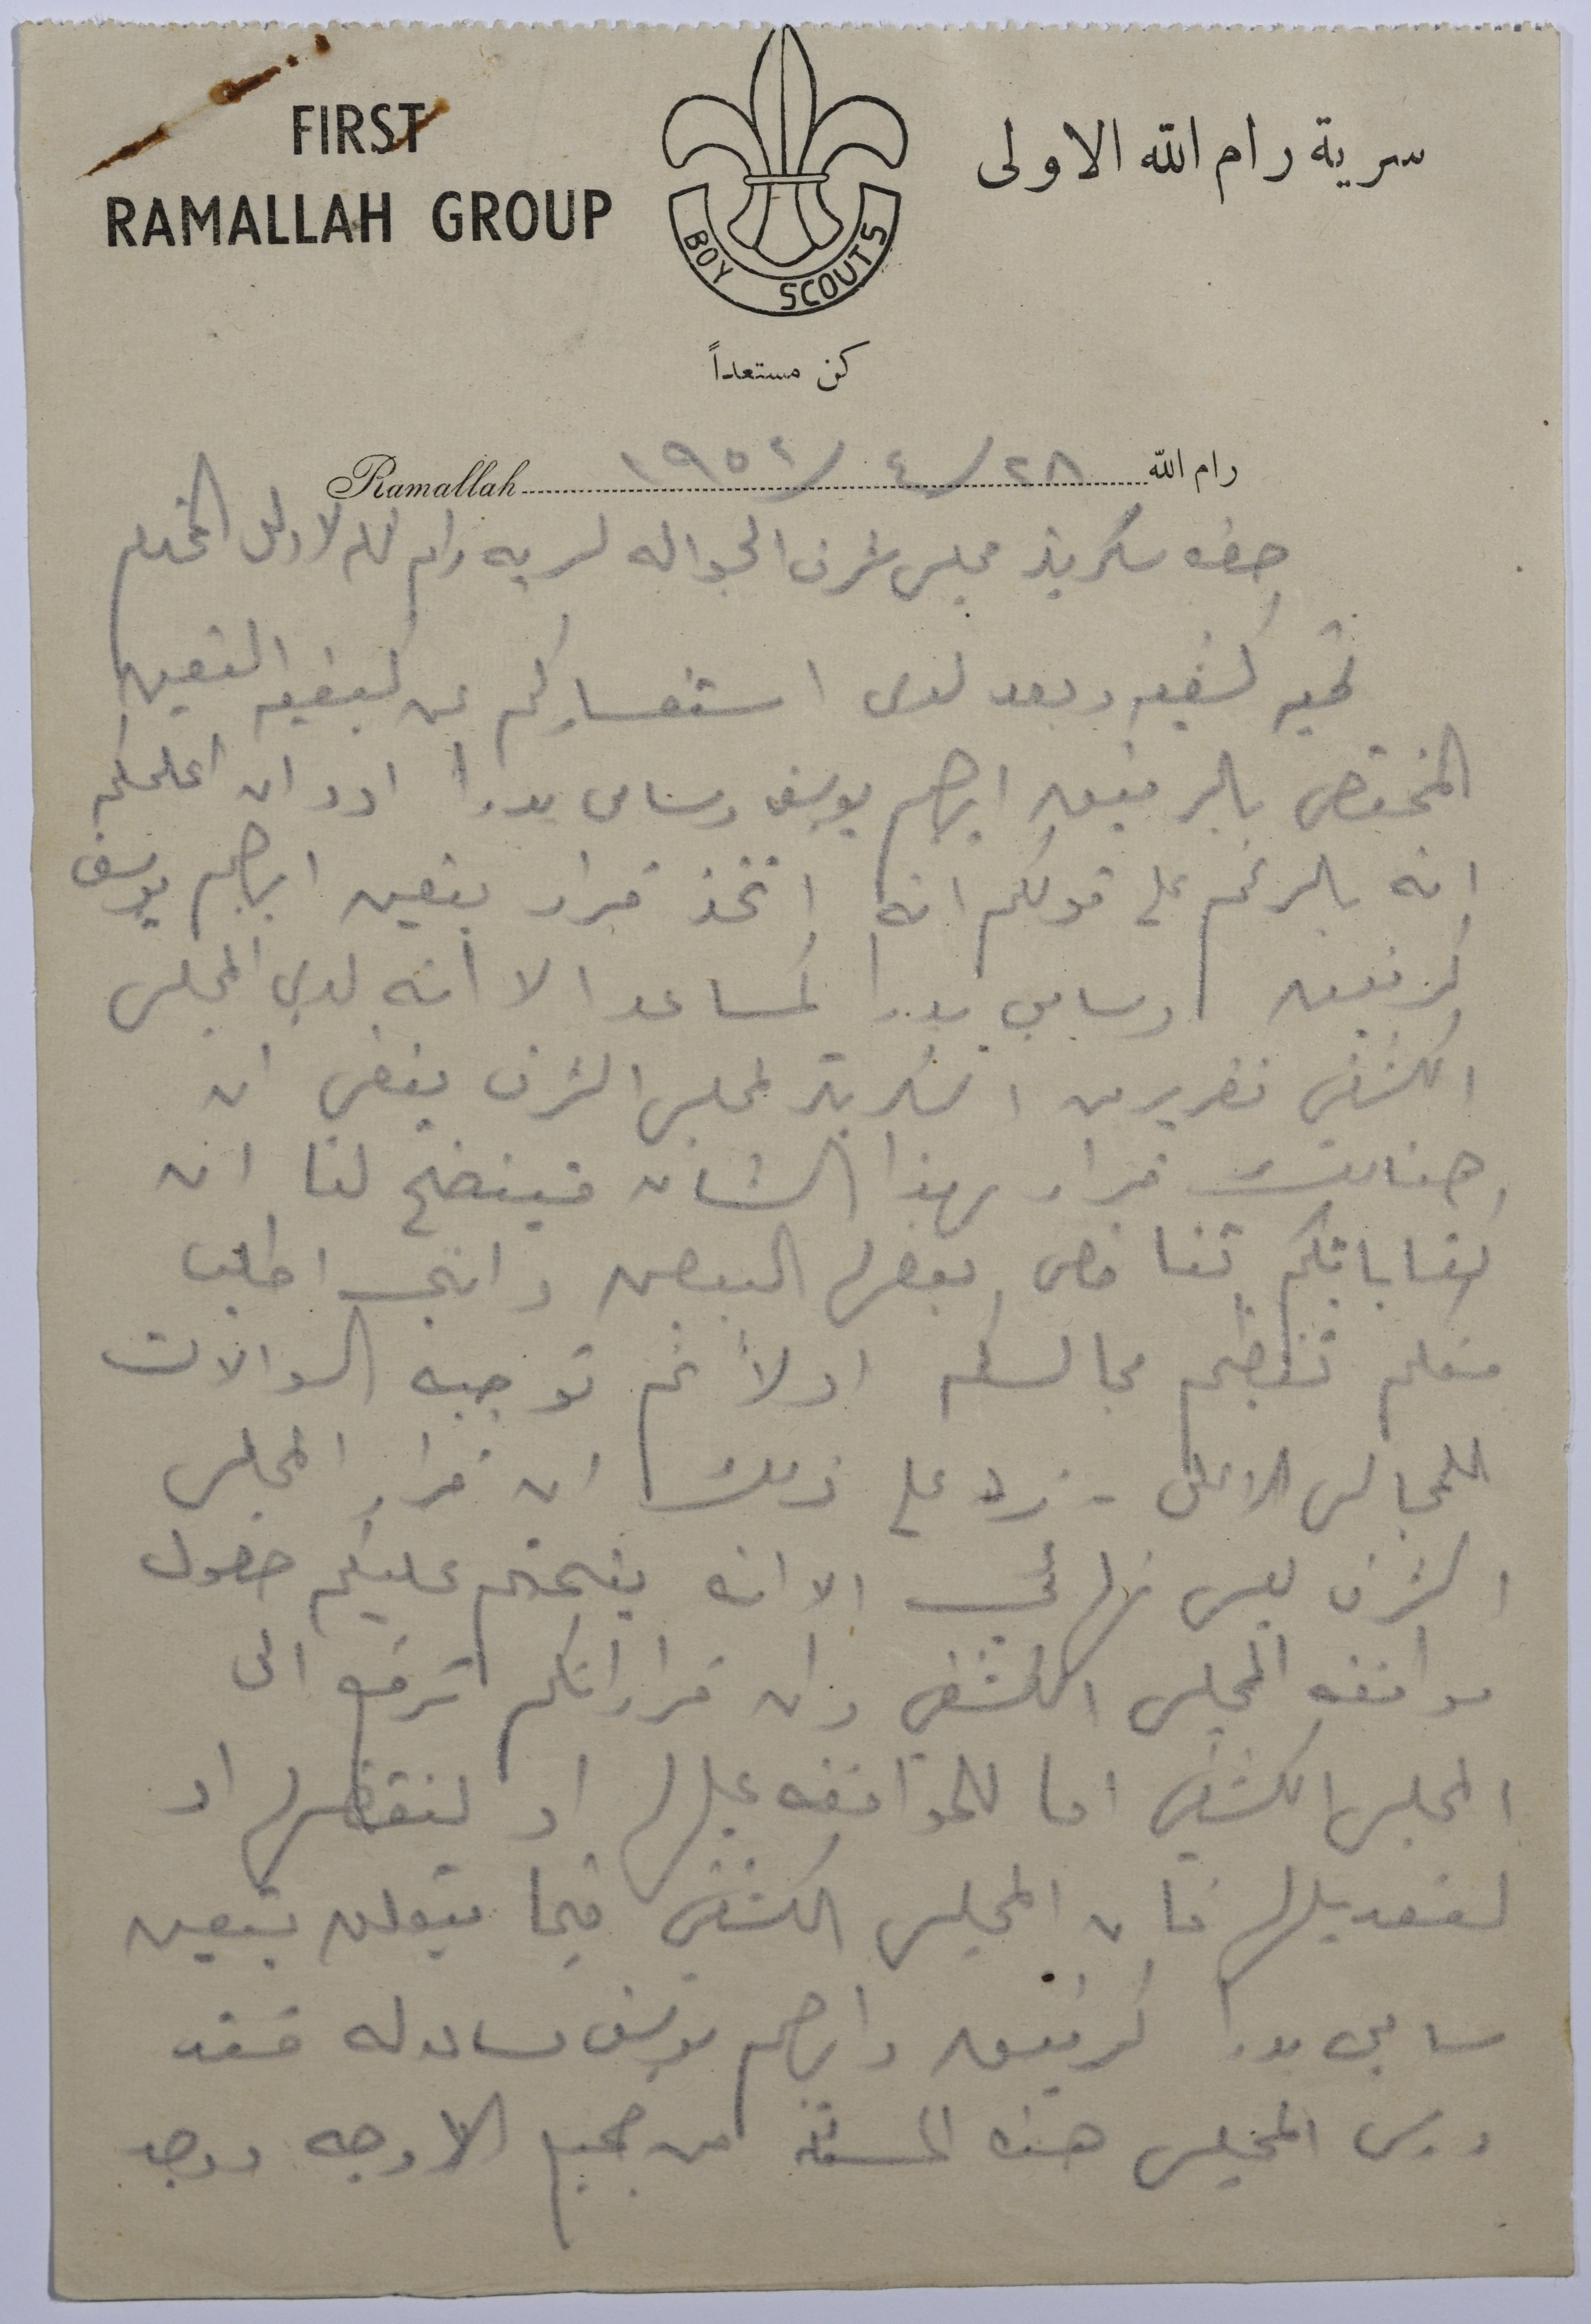 FIRST
RAMALLAH GROUP
سرية رام الله الاولى
BOY SCOUTS
كن مستعداً
Ramallah ١٩٥٢/٤/٢٨ رام الله
حضره سكريتر مجلس شرف الجواله لسريه رام الله الاولى المحترم
تحيه كشفيه وبعد لدى استفساركم عن كيفيه التعين
المختص بالرفيق ابرهيم يوسف وسامي بدرا اود ان اعلمكم
انه بالرغم على قولكم انه اتخذ قرار بتعين ابرهيم يوسف
كرفيق وسامي بدرا كمساعد الا انه لدى المجلس
الكشفي تقرير من السكريتر لمجلس الشرف ينفي ان
هنالك قرار بهذا الشان فيتضح لنا ان
كتاباتكم تناقض بعضها البعض وانني اطلب
منكم تنظيم مجالسكم اولاً ثم توجيه السوالات
للمجالس الاعلى - زد على ذلك ان قرار المجلس
الشرف ليس نهائي الا انه يتحتم عليكم حصول
موافقه المجلس الكشفي وان قراراتكم ترفع الى
المجلس الكشفي اما للموافقه عليها او لنقضها او
لتعديلها فان المجلس الكشفي فيما يتعلق بتعين
سامي بدرا كرفيق وابرهيم يوسف مساعد له فقد
درس المجلس هذه المسئلة من جميع الاوجه ووجد